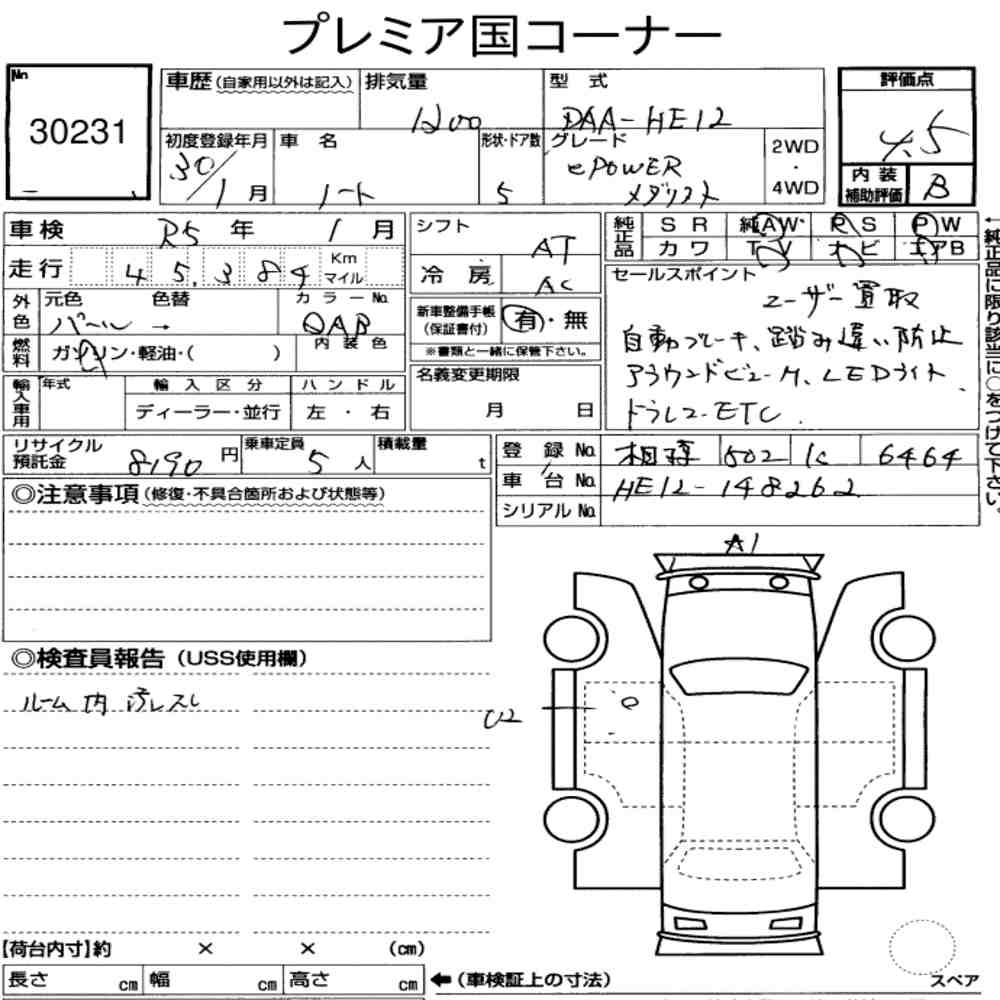 プレミア国コーナー
No
30231
車歴(自家用以外は記入)
排気量
1200
型式
DAA-HE12
評価点
4.5
初度登録年月
30/1月
車名
ノート
形状・ドア数
5
グレード
ePOWER
メダリスト
2WD
・
4WD
内装
補助評価
B
車検 R5年 1月
走行 45,384 Km
マイル
シフト
AT
冷房 AC
純正品
SR 純AW PS PW
カワ TV ナビ エアB
外色
元色 色替
パール →
カラーNo.
QAB
内装色
新車整備手帳
(保証書付)
有・無
※書類と一緒に保管下さい。
セールスポイント
ユーザー買取
自動ブレーキ、踏み違い防止
アラウンドビューM、LEDライト、
ドラレコ-ETC
燃料
ガソリン・軽油・( )
輸入車用
年式
輸入区分
ディーラー・並行
ハンドル
左・右
名義変更期限
月 日
←純正品に限り該当に○をつけて下さい。
リサイクル
預託金
8190円
乗車定員
5人
積載量
t
登録No. 相模 502 6464
車台No. HE12-148262
シリアルNo.
◎注意事項(修復・不具合箇所および状態等)
◎検査員報告(USS使用欄)
ルーム内汚レスレ
A1
U2
【荷台内寸】約 × × (cm)
長さ cm 幅 cm 高さ cm
←(車検証上の寸法)
スペア